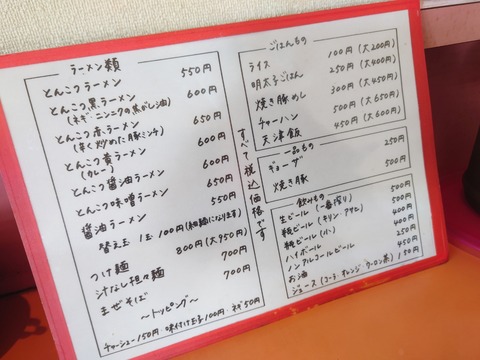 ラーメン類
とんこつラーメン 550円
とんこつ黒ラーメン 600円
(ネギ・ニンニクの焦がし油)
とんこつ赤ラーメン 650円
(辛く炒めた豚ミンチ)
とんこつ黄ラーメン 600円
(カレー)
とんこつ醤油ラーメン 600円
とんこつ味噌ラーメン 650円
醤油ラーメン 550円
替え玉 1玉 100円(細麺になります)
つけ麺 800円(大950円)
汁なし担々麺 700円
まぜそば 700円
〜トッピング〜
チャーシュー150円・味付け玉子100円・ネギ50円
すべて税込価格です
ごはんもの
ライス 100円(大200円)
明太子ごはん 250円(大400円)
焼き豚めし 300円(大450円)
チャーハン 500円(大650円)
天津飯 450円(大600円)
一品もの
ギョーザ 250円
焼き豚 500円
飲みもの
生ビール(一番搾り) 500円
瓶ビール(キリン・アサヒ) 500円
瓶ビール(小) 400円
ハイボール 400円
ノンアルコールビール 250円
お酒 450円
ジュース(コーラ・オレンジ・ウーロン茶) 150円